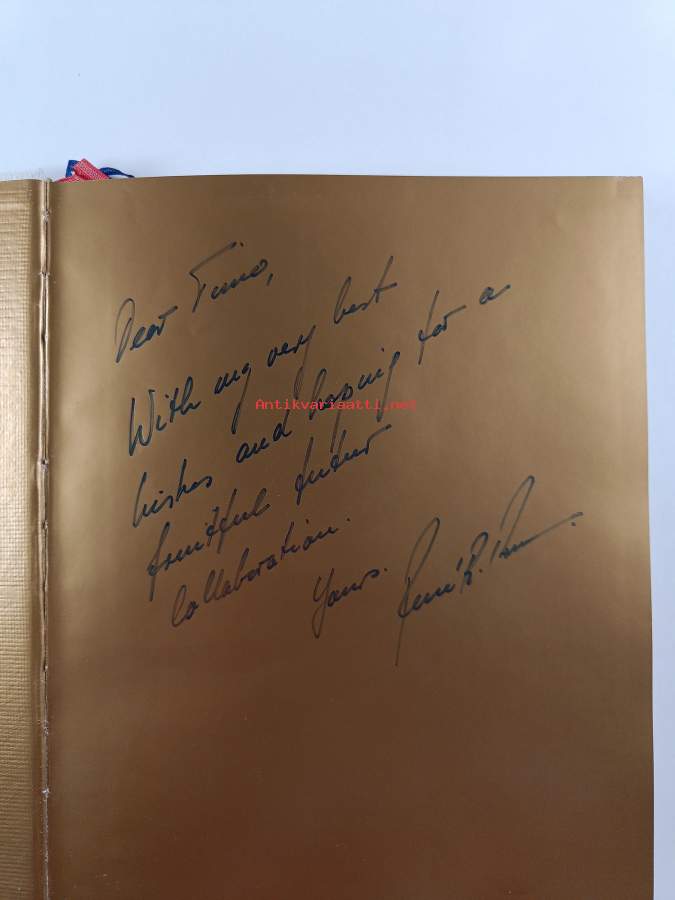 Dear Timo,
With my very best
wishes and hoping for a
Antikvariaatti.net
fruitful future
collaboration.
Yours.